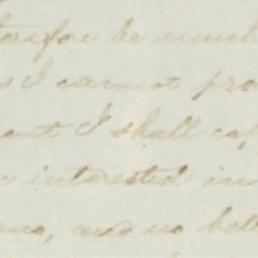 therefore be much
I cannot pro
I shall cap
interested in
and no bett